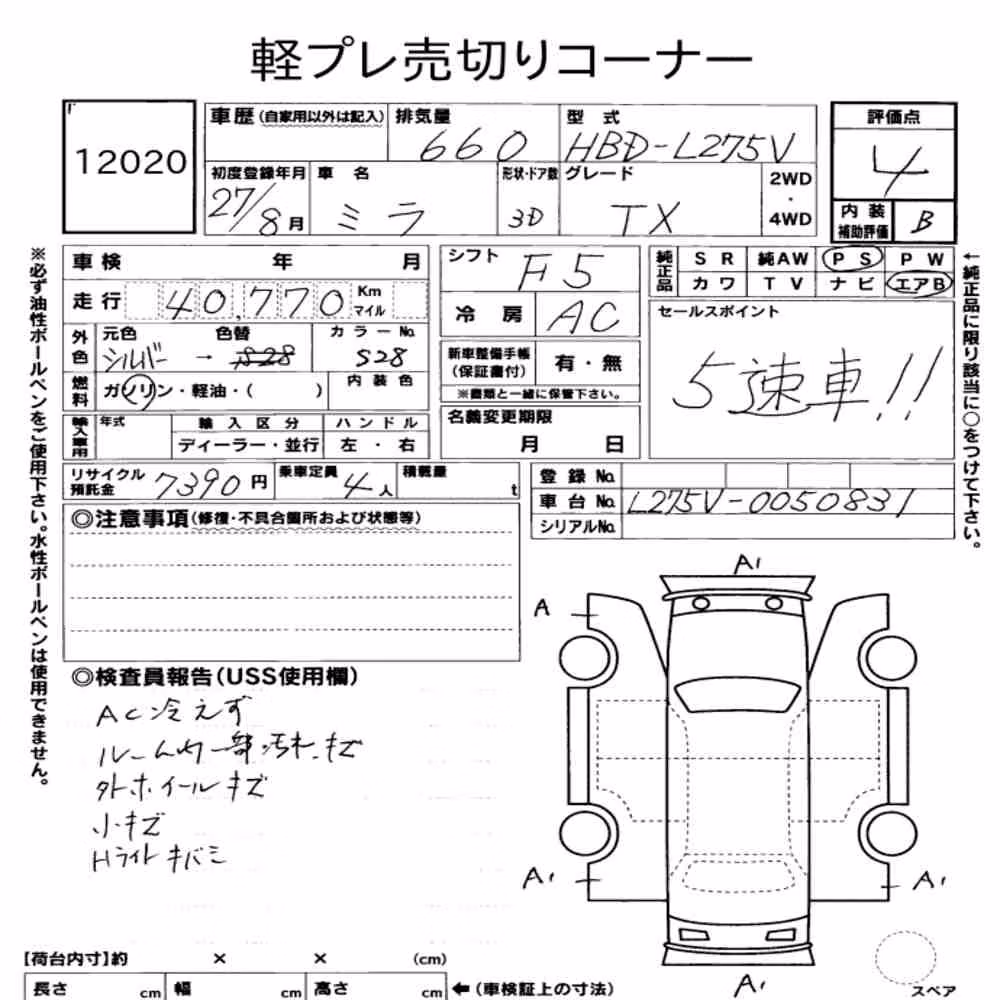 軽プレ売切りコーナー
12020
車歴(自家用以外は記入) 排気量 660 型式 HBD-L275V 評価点 4
初度登録年月 27/8月 車名 ミラ 形状・ドア数 3D グレード TX 2WD・4WD 内装補助評価 B
車検 年 月
走行 40,770 Km マイル
外色 元色 シルバー → 色替 S28 カラーNo. S28
燃料 ガソリン・軽油・( ) 内装色
輸入車用 年式 輸入区分 ディーラー・並行 ハンドル 左・右
シフト F5
冷房 AC
新車整備手帳(保証書付) 有・無
※書類と一緒に保管下さい。
名義変更期限 月 日
純正品 SR 純AW PS PW
カワ TV ナビ エアB
セールスポイント
5速車!!
リサイクル預託金 7390円 乗車定員 4人 積載量 t
登録No.
車台No. L275V-0050831
シリアルNo.
◎注意事項(修復・不具合箇所および状態等)
◎検査員報告(USS使用欄)
AC冷えず
ルーム内一部汚れ、キズ
外ホイールキズ
小キズ
Hライトキバミ
A1
A
A1
A1
A1
スペア
【荷台内寸】約 × × (cm)
長さ cm 幅 cm 高さ cm ←(車検証上の寸法)
※必ず油性ボールペンをご使用下さい。水性ボールペンは使用できません。
←純正品に限り該当に○をつけて下さい。